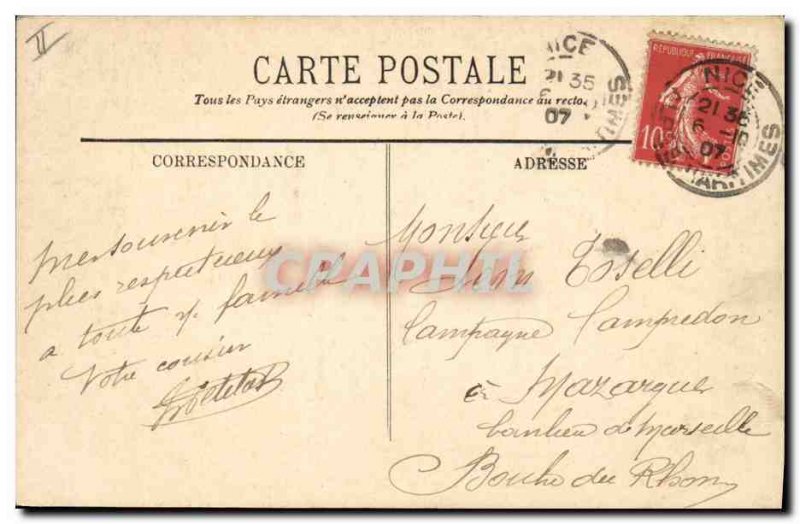 II
CARTE POSTALE
Tous les Pays étrangers n'acceptent pas la Correspondance au recto.
(Se renseigner à la Poste).
NICE
21 35
6
07
MARITIMES
REPUBLIQUE FRANÇAISE
10c
NICE
21 35
6
07
MARITIMES
CORRESPONDANCE
ADRESSE
le
plus respectueux
a toute famille
Votre cousin
Monsieur
Toselli
Campagne Campredon
à Mazargues
banlieu de Marseille
Bouche du Rhone
CPAPHIL